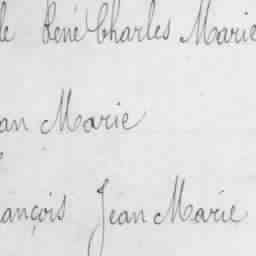 le René Charles Marie
an Marie
ançois Jean Marie